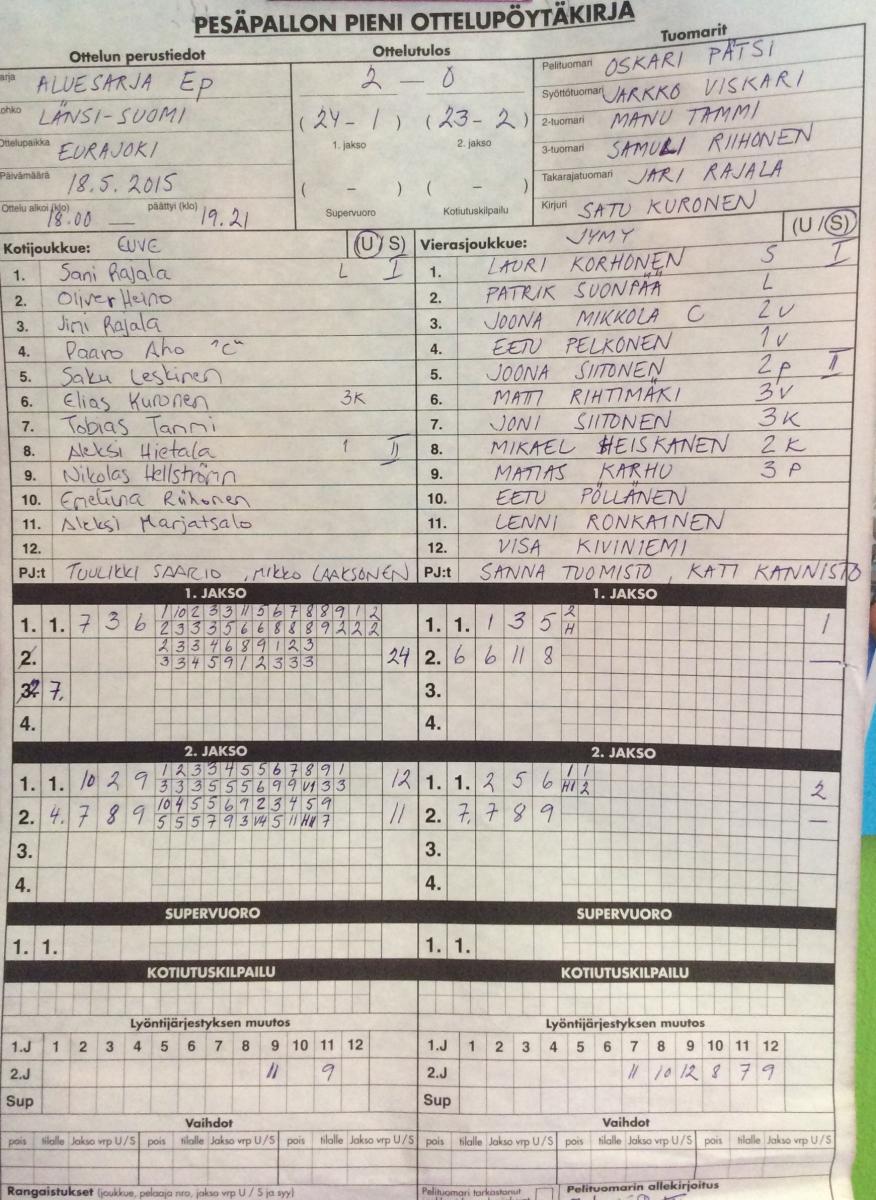 PESÄPALLON PIENI OTTELUPÖYTÄKIRJA
Ottelun perustiedot
Ottelutulos
Tuomarit
arja ALUESARJA EP
ohko LÄNSI-SUOMI
Ottelupaikka EURAJOKI
Päivämäärä 18.5. 2015
Ottelu alkoi (klo) 18.00 päättyi (klo) 19.21
2 – 0
(24 - 1) (23 - 2)
1. jakso 2. jakso
( – ) ( – )
Supervuoro Kotiutuskilpailu
Pelituomari OSKARI PÄTSI
Syöttötuomari JARKKO VISKARI
2-tuomari MANU TAMMI
3-tuomari SAMULI RIIHONEN
Takarajatuomari JARI RAJALA
Kirjuri SATU KURONEN
Kotijoukkue: EUVE (U/S)
1. Sani Rajala L I
2. Oliver Heino
3. Jini Rajala
4. Paavo Aho "C"
5. Saku Leskinen
6. Elias Kuronen 3K
7. Tobias Tammi
8. Aleksi Hietala 1 II
9. Nikolas Hellström
10. Eneliina Riihonen
11. Aleksi Marjatsalo
12.
PJ:t TUULIKKI SAARIO , MIKKO LAAKSONEN
Vierasjoukkue: JYMY (U/S)
1. LAURI KORHONEN S I
2. PATRIK SUONPÄÄ L
3. JOONA MIKKOLA C 2V
4. EETU PELKONEN 1V
5. JOONA SIITONEN 2P II
6. MATTI RIHTIMÄKI 3V
7. JONI SIITONEN 3K
8. MIKAEL HEISKANEN 2K
9. MATIAS KARHU 3P
10. EETU PÖLLÄNEN
11. LENNI RONKAINEN
12. VISA KIVINIEMI
PJ:t SANNA TUOMISTO , KATI KANNISTO
1. JAKSO
1. 1. 7 3 6 1 10 2 3 3 11 5 6 7 8 8 9 1 2
2 3 3 3 5 6 6 8 8 8 9 2 2 2
2. 2 3 3 4 6 8 9 1 2 3
3 3 4 5 9 1 2 3 3 3 24
7.
4.
1. JAKSO
1. 1. 1 3 5 2 1
H
2. 6 6 11 8 —
3.
4.
2. JAKSO
1. 1. 10 2 9 1 2 3 3 4 5 5 6 7 8 9 1 12
3 3 3 5 5 5 6 9 9 V1 3 3
2. 4. 7 8 9 10 4 5 5 6 9 2 3 4 5 9 11
5 5 5 7 9 3 V4 5 11 H11 7
3.
4.
2. JAKSO
1. 1. 2 5 6 1 1 2
H1 2
2. 7. 7 8 9 —
3.
4.
SUPERVUORO
1. 1.
SUPERVUORO
1. 1.
KOTIUTUSKILPAILU
KOTIUTUSKILPAILU
Lyöntijärjestyksen muutos
1.J 1 2 3 4 5 6 7 8 9 10 11 12
2.J 11 9
Sup
Lyöntijärjestyksen muutos
1.J 1 2 3 4 5 6 7 8 9 10 11 12
2.J 11 10 12 8 7 9
Sup
Vaihdot
pois tilalle Jakso vrp U/S pois tilalle Jakso vrp U/S pois tilalle Jakso vrp U/S
Vaihdot
pois tilalle Jakso vrp U/S pois tilalle Jakso vrp U/S pois tilalle Jakso vrp U/S
Rangaistukset (joukkue, pelaaja nro, jakso vrp U / S ja syy)
Pelituomari tarkastanut
Pelituomarin allekirjoitus